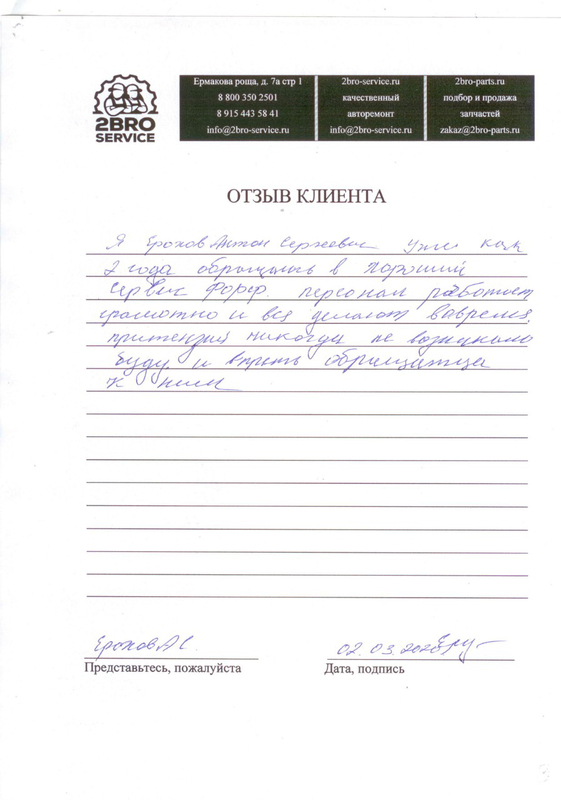 2BRO
SERVICE
Ермакова роща, д. 7а стр 1
8 800 350 2501
8 915 443 58 41
info@2bro-service.ru
2bro-service.ru
качественный
авторемонт
info@2bro-service.ru
2bro-parts.ru
подбор и продажа
запчастей
zakaz@2bro-parts.ru
ОТЗЫВ КЛИЕНТА
Я Ерохов Антон Сергеевич уже как
2 года обращаюсь в хороший
сервис Форд. персонал работает
грамотно и все делают вовремя.
притензий никогда не возникало
буду и впреть обращатца
к ним
Ерохов А С.
Представьтесь, пожалуйста
02.03.
Дата, подпись